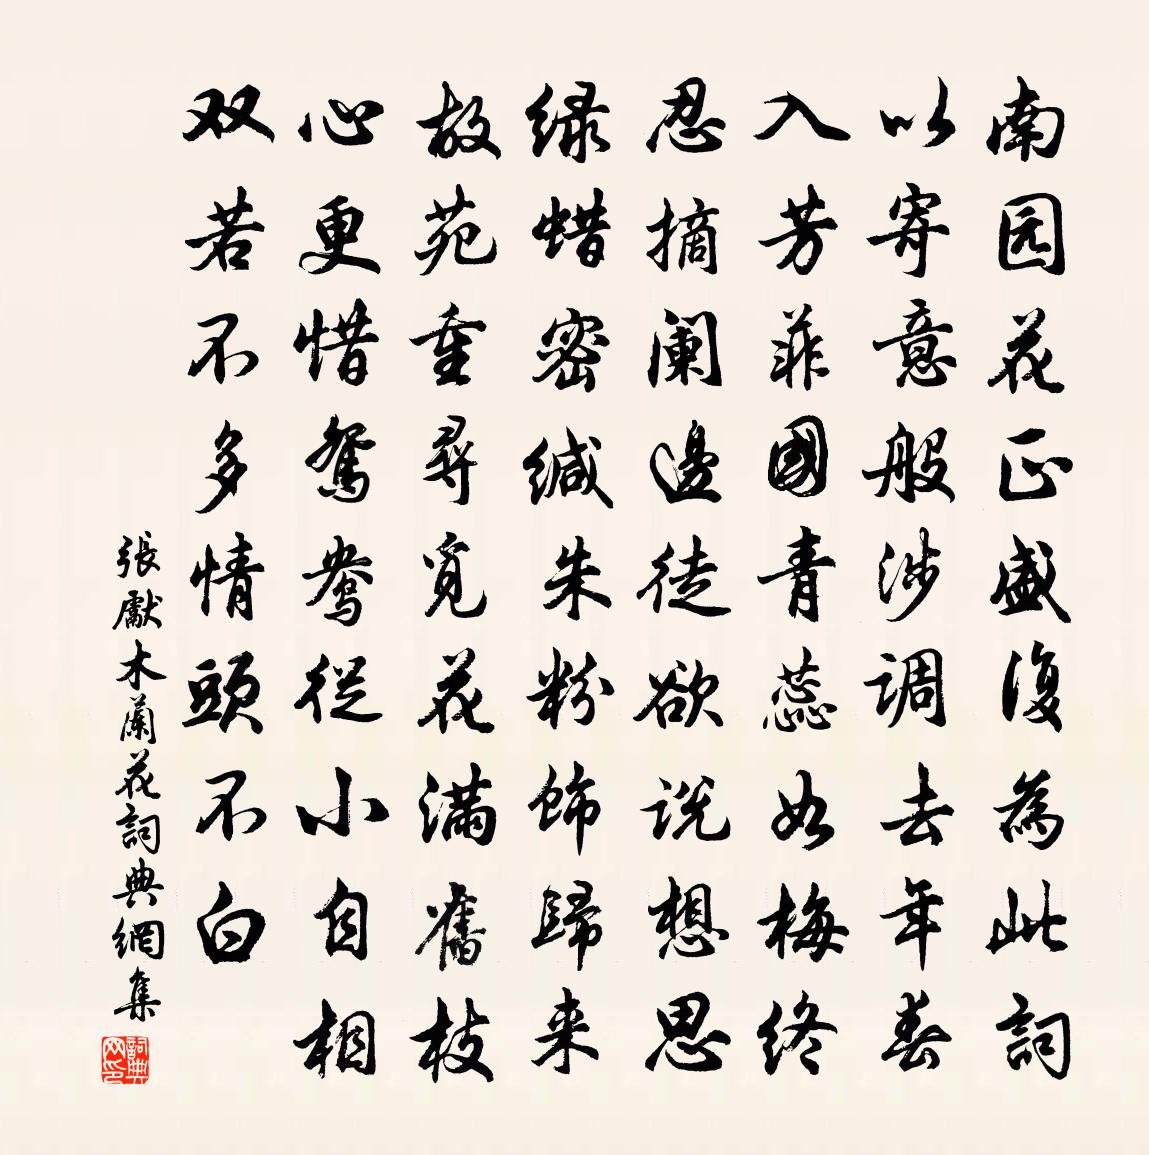 南园花正盛復為此詞
以寄意般涉调去年春
入芳菲國青蕊如梅終
忍摘阑邊徒欲说想思
绿蜡密缄朱粉饰歸来
故苑重尋觅花满舊枝
心更惜鴛鴦從小自相
双若不多情頭不白
張獻木蘭花詞典網集
詞典网印